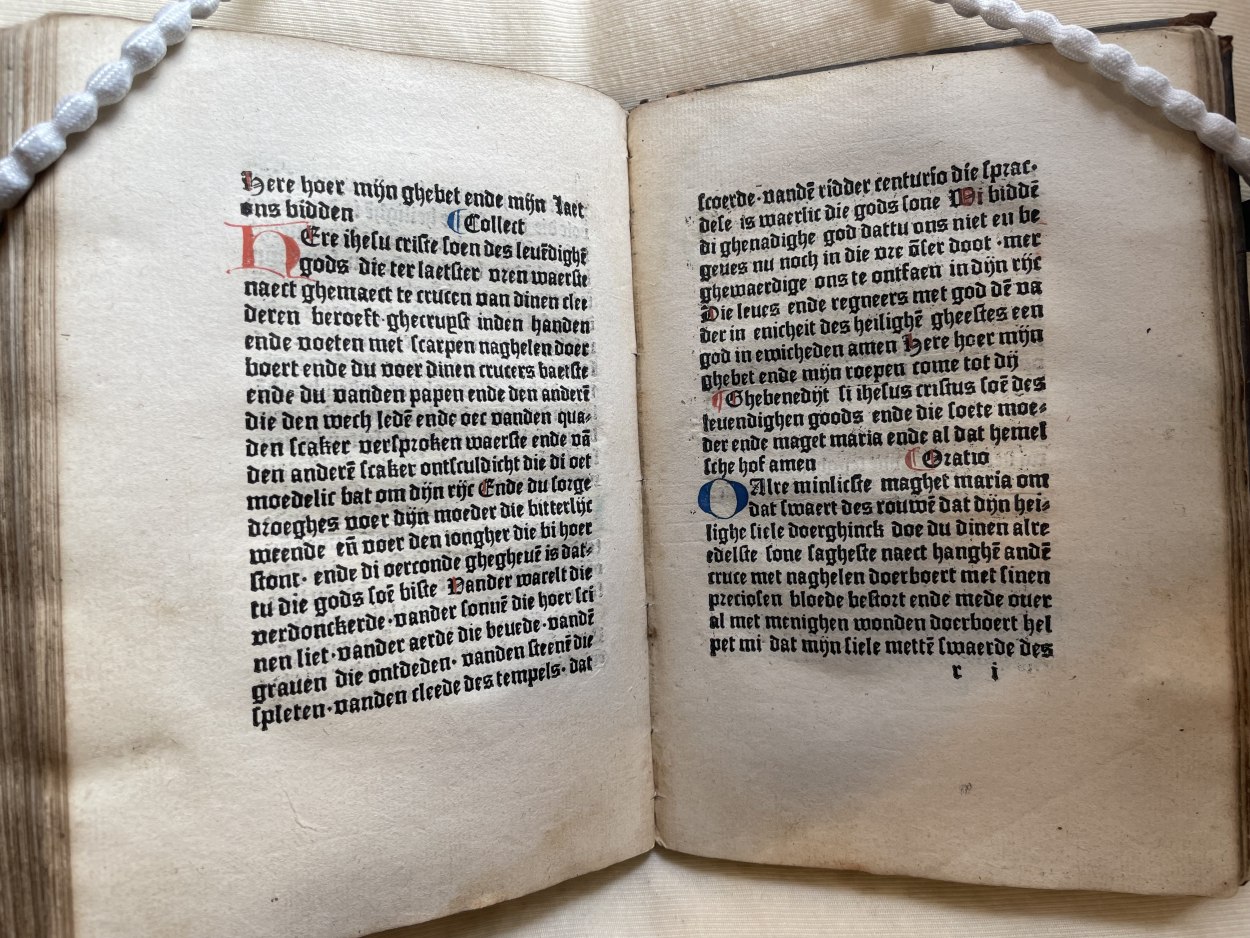 Here hoer mijn ghebet ende mijn laet
ons bidden ¶Collect
HEre ihesu criste soen des leuēdighē
gods die ter laetster vren waerste
naect ghemaect te crucen van dinen clee
deren beroeft·ghecrupst inden handen
ende voeten met scarpen naghelen doer
boert ende du voer dinen crucers baetste
ende du vanden papen ende den anderē
die den wech ledē ende oec vanden qua⸗
den scaker versproken waerste ende vā
den anderē scaker ontsculdicht die di oet
moedelic bat om dijn rijc Ende du sorge
droeghes voer dijn moeder die bitterlijc
weende eñ voer den iongher die bi hoer
stont· ende di oerconde ghegheuē is dat⸗
tu die gods soē biste Vander warelt die
verdonckerde·vander sonnē die hoer sci
nen liet·vander aerde die beuede·vandē
grauen die ontdeden· vanden steenē die
spleten·vanden cleede des tempels· dat
scoerde·vandē ridder centurio die sprac·
dese is waerlic die gods sone Wi biddē
di ghenadighe god dattu ons niet eu be
geues nu noch in die vre ōser doot·mer
ghewaerdige ons te ontfaen in dijn rijc
Die leues ende regneers met god dē va
der in enicheit des heilighē gheestes een
god in ewicheden amen Here hoer mijn
ghebet ende mijn roepen come tot dij
¶Ghebenedijt si ihesus cristus soē des
leuendighen goods ende die soete moe⸗
der ende maget maria ende al dat hemel
sche hof amen ¶Oratio
OAlre minlicste maghet maria om
dat swaert des rouwē dat dijn hei⸗
lighe siele doerghinck doe du dinen alre
edelste sone sagheste naect hanghē andē
cruce met naghelen doerboert met sinen
preciosen bloede bestort ende mede ouer
al met menighen wonden doerboert hel
pet mi dat mijn siele mettē swaerde des
r i